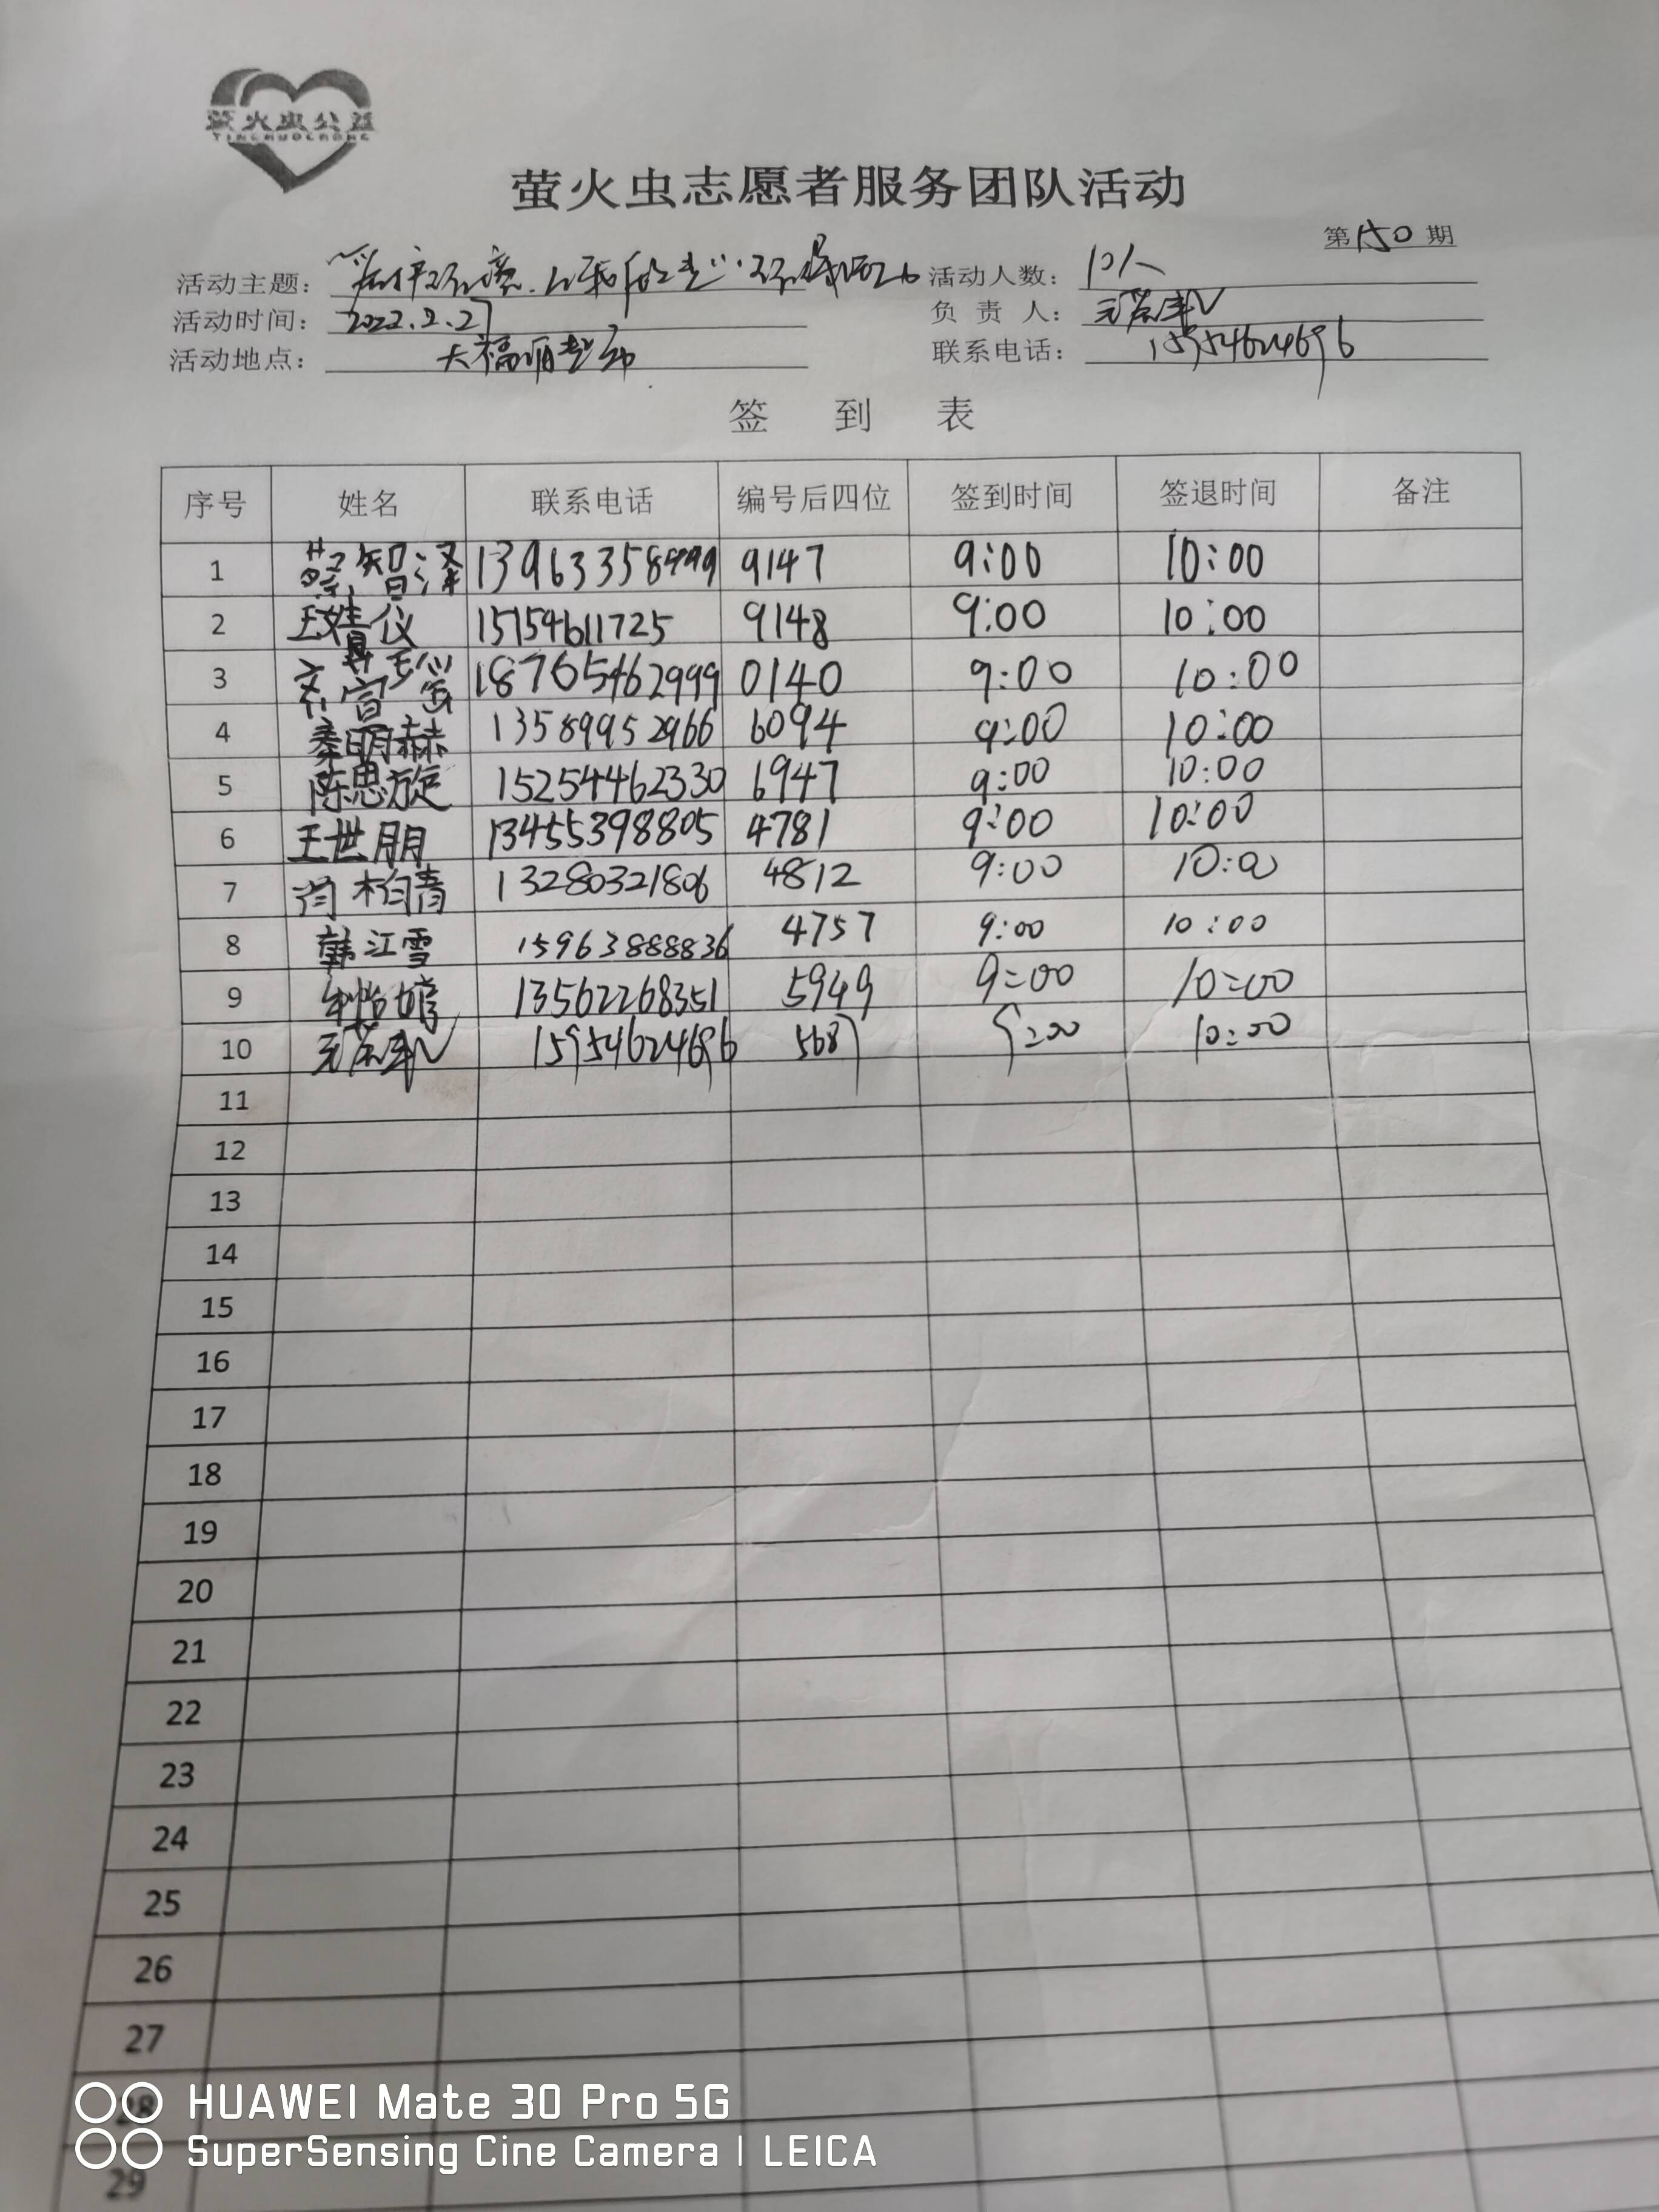 萤火虫公益
YINGHUOCHONG
萤火虫志愿者服务团队活动
第150期
活动主题：
活动人数： 10人
活动时间： 2022.2.27
负 责 人：
活动地点：
联系电话： 15954624696
签 到 表
序号 姓名 联系电话 编号后四位 签到时间 签退时间 备注
1 蔡智泽 13963358999 9147 9:00 10:00
2 王婧仪 15154611725 9148 9:00 10:00
3 18765462999 0140 9:00 10:00
4 秦明赫 13589952966 6094 9:00 10:00
5 陈思旋 15254462330 6947 9:00 10:00
6 王世朋 13455398805 4781 9:00 10:00
7 柏青 13280321806 4812 9:00 10:00
8 韩江雪 15963888836 4757 9:00 10:00
9 13562268351 5949 9:00 10:00
10 15954624696 5687 9:00 10:00
11
12
13
14
15
16
17
18
19
20
21
22
23
24
25
26
27
28
29
HUAWEI Mate 30 Pro 5G
SuperSensing Cine Camera | LEICA